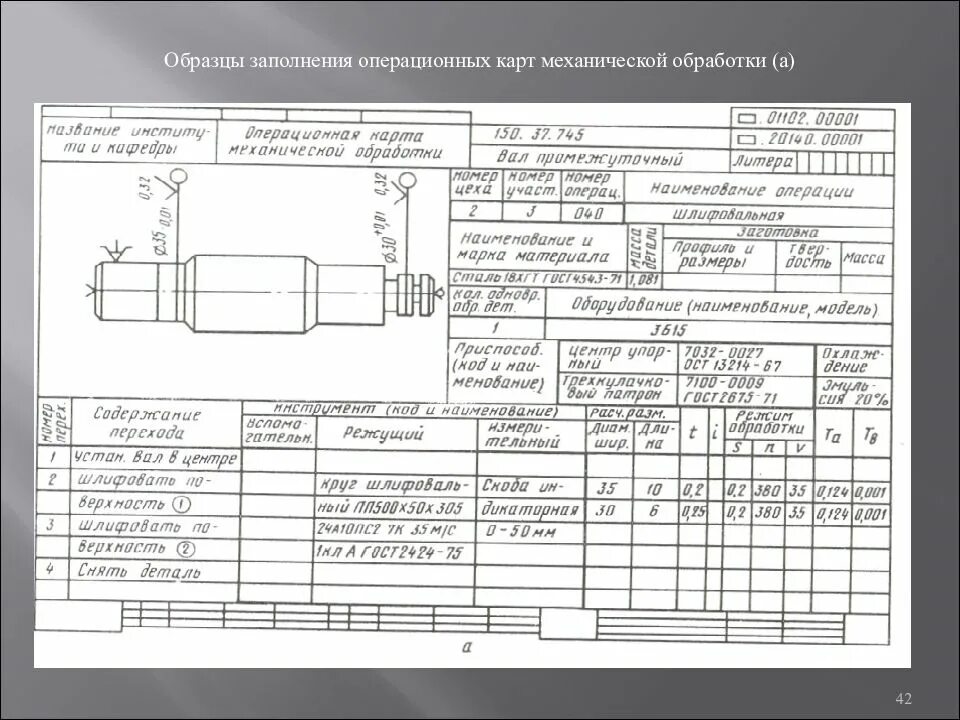 Образцы заполнения операционных карт механической обработки (а)
Название институ-
та и кафедры
Операционная карта
механической обработки
150. 37. 745
Вал промежуточный
.01102. 00001
. 20140. 00001
Литера
0,32
0,32
Ø35-0,01
Ø30+0,01
номер цеха
номер участ.
номер операц.
Наименование операции
2
3
040
шлифовальная
Наименование и
марка материала
масса детали
Заготовка
Профиль и размеры
Твер-дость
Масса
Сталь 18ХГТ ГОСТ4543-71
1,081
кол. одновр.
обр. дет.
Оборудование (наименование, модель)
1
3Б15
Приспособ.
(код и наи-
менование)
Центр упор-
ный
7032-0027
ОСТ 13214-67
Трехкулачко-
вый патрон
7100-0009
ГОСТ2675-71
Охлаж-
дение
Эмуль-
сия 20%
номер перех.
Содержание
перехода
Инструмент (код и наименование)
Расч. разм.
Режим
обработки
Вспомо-
гательн.
Режущий
Измери-
тельный
Диам.
шир.
Дли-
на
t
i
S
n
v
Tа
Tв
1 Устан. Вал в центре
2 Шлифовать по- круг шлифоваль- Скоба ин- 35 10 0,2 0,2 380 35 0,124 0,001
верхность 1 ный ПП500×50×305 дикаторная 30 6 0,25 0,2 380 35 0,124 0,001
3 Шлифовать по- 24А10ПС2 7К 35 м/с 0-50мм
верхность 2 1кл А ГОСТ2424-75
4 Снять деталь
а
42